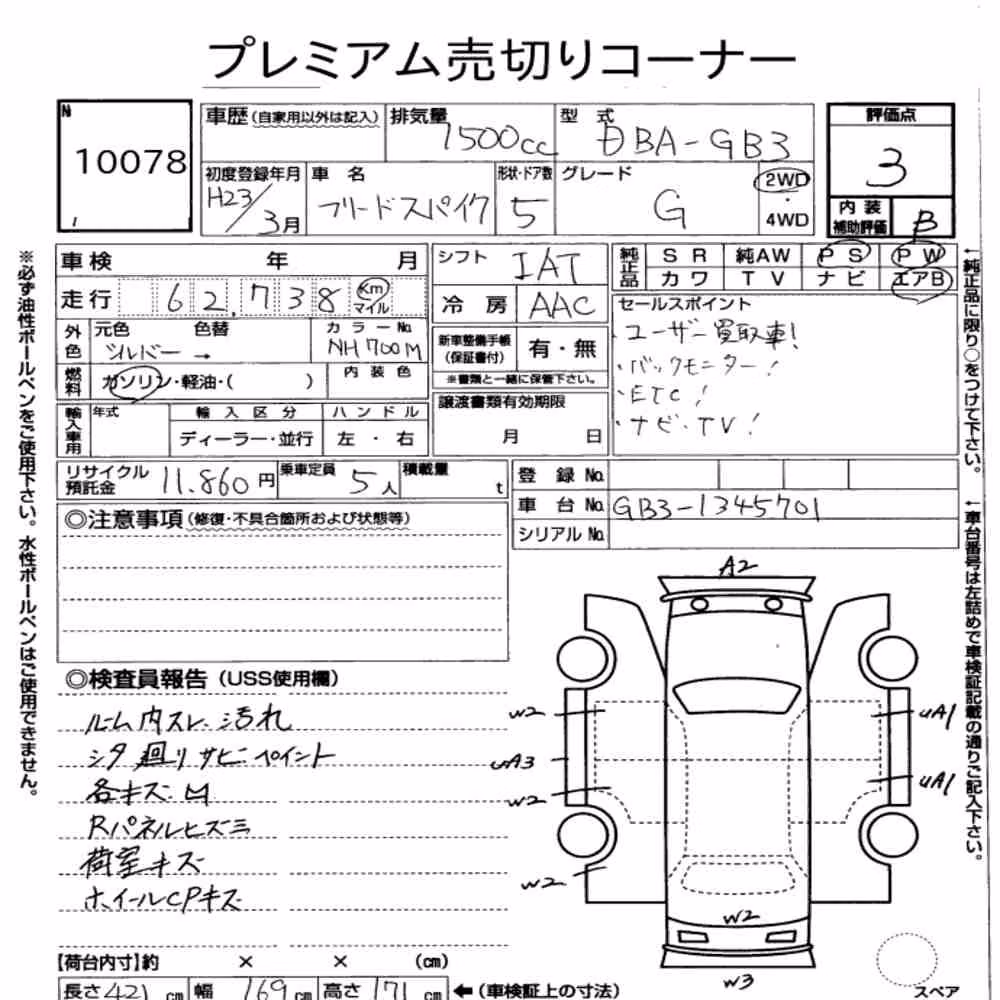 プレミアム売切りコーナー
№
10078
車歴(自家用以外は記入)
排気量 1500cc
型式 DBA-GB3
評価点
3
初度登録年月
H23/3月
車名
フリードスパイク
形状・ドア数
5
グレード
G
2WD
・
4WD
内装
補助評価
B
車検 年 月
走行 62,738 Km
マイル
外色
元色 色替
シルバー →
カラーNo.
NH700M
燃料
ガソリン・軽油・( )
内装色
輸入車用
年式
輸入区分
ハンドル
ディーラー・並行
左・右
シフト IAT
冷房 AAC
新車整備手帳
(保証書付)
有・無
※書類と一緒に保管下さい。
譲渡書類有効期限
月 日
純正品
SR 純AW PS PW
カワ TV ナビ エアB
セールスポイント
・ユーザー買取車!
・バックモニター!
・ETC!
・ナビ・TV!
リサイクル
預託金
11,860円
乗車定員 5人
積載量 t
登録No.
車台No. GB3-1345701
シリアルNo.
◎注意事項(修復・不具合箇所および状態等)
◎検査員報告(USS使用欄)
ルーム内スレ、汚れ
シタ廻りサビペイント
各キズ、凹
Rパネルヒズミ
荷室キズ
ホイールCPキズ
A2
W2
UA3
W2
W2
UA1
UA1
W2
W3
スペア
【荷台内寸】約 × × (cm)
長さ421cm 幅169cm 高さ171cm ←(車検証上の寸法)
※必ず油性ボールペンをご使用下さい。水性ボールペンはご使用できません。
←純正品に限り○をつけて下さい。
←車台番号は左詰めで車検証記載の通りご記入下さい。